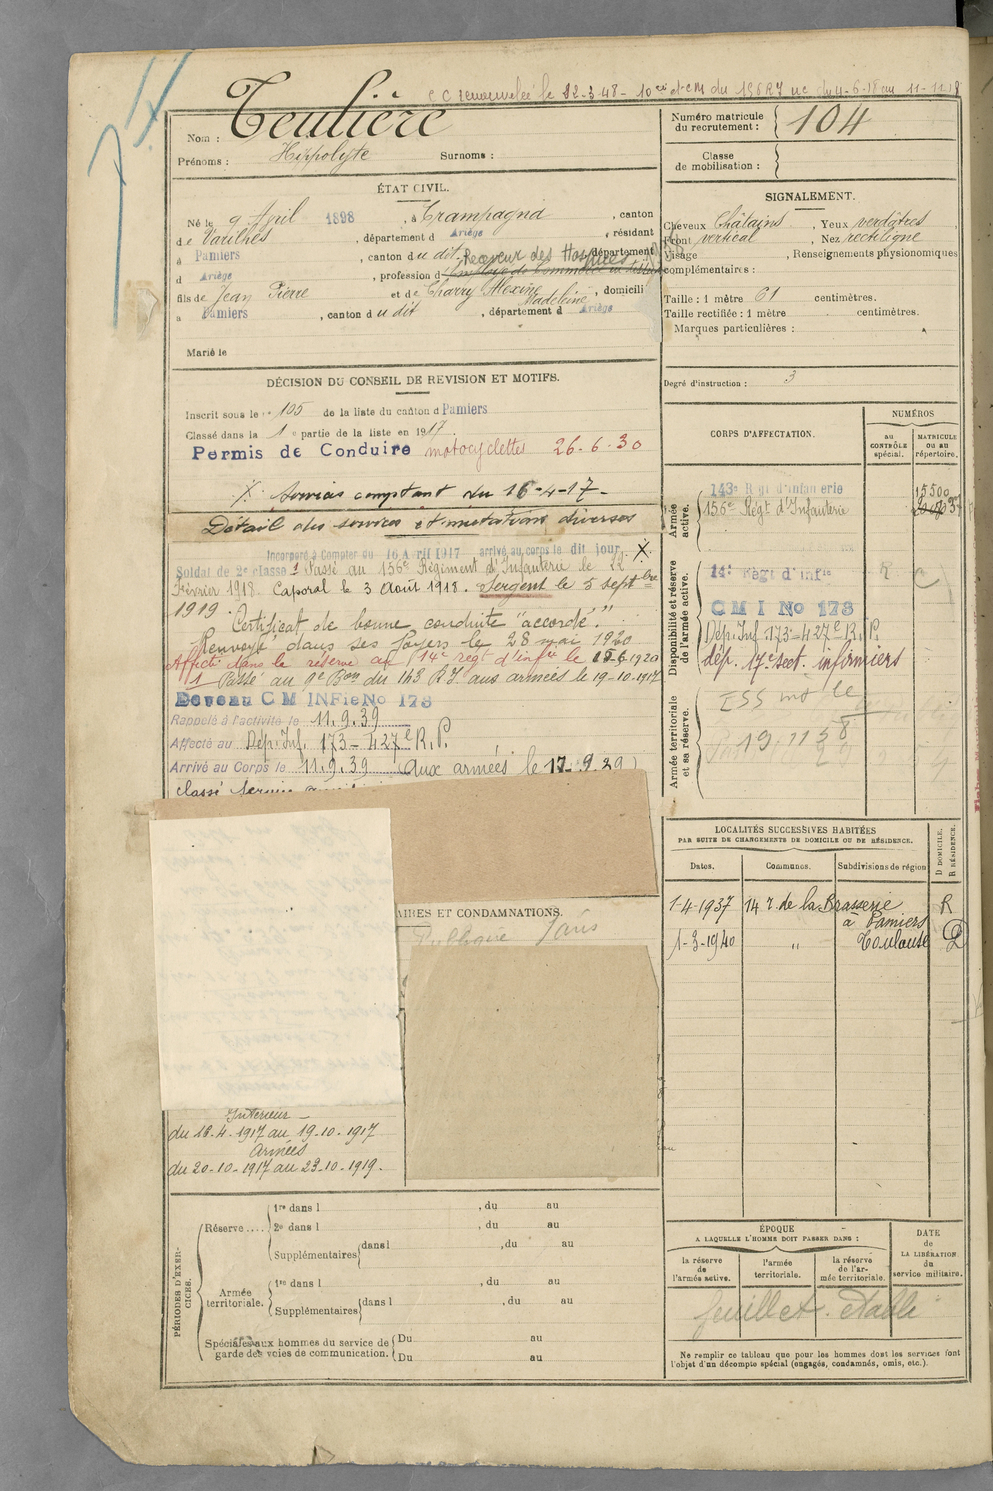 C C renouvelée le 22-3-48 - 10 ce et cm du 156 RI uc du 4-6-18 au 11-11-18
Nom : Teulière
Prénoms : Hippolyte Surnoms :
ÉTAT CIVIL.
Né le 9 April 1898 , à Crampagna , canton
de Varilhes , département d Ariège , résidant
à Pamiers , canton du dit , département
Receveur des Hospices
d Ariège , profession d Employé de Commerce
fils de Jean Pierre et de Charry Alexine , domicili
Madeleine
à Pamiers , canton du dit , département d Ariège
Marié le
DÉCISION DU CONSEIL DE REVISION ET MOTIFS.
Inscrit sous le n° 105 de la liste du canton d Pamiers
Classé dans la 1 e partie de la liste en 1917.
Permis de Conduire motocyclettes 26-6-30
X. services comptant du 16-4-17-
Détail des services et mutations diverses
Incorporé à Compter du 16 Avril 1917 arrivé au corps le dit jour. X.
Soldat de 2e classe 1 Passé au 156e Régiment d'Infanterie le 22
Février 1918. Caporal le 3 Août 1918. Sergent le 5 septbre
1919. Certificat de bonne conduite "accordé."
Renvoyé dans ses foyers le 28 mai 1920
Affecté dans la réserve au 14e régt d'infie le 15-6-1920
1 Passé au 9e Bon du 143 RI aux armées le 19-10-1917
Dévenu CM INFie No 173
Rappelé à l'activité le 11.9.39
Affecté au Dép. Inf. 173-427e R.P.
Arrivé au Corps le 11.9.39 (aux armées le 17.9.39)
classé service
AIRES ET CONDAMNATIONS.
Publique Paris
Intérieur -
du 16-4-1917 au 19-10-1917
Armées
du 20-10-1917 au 23-10-1919.
PÉRIODES D'EXERCICES.
Réserve .... 1re dans l , du au
2e dans l , du au
Supplémentaires dans l , du au
Armée territoriale. 1re dans l , du au
Supplémentaires dans l , du au
Spéciales aux hommes du service de Du au
garde des voies de communication. Du au
Numéro matricule du recrutement : 104
Classe de mobilisation :
SIGNALEMENT.
Cheveux Châtains , Yeux verdâtres
Front vertical , Nez rectiligne
Visage , Renseignements physionomiques
complémentaires :
Taille : 1 mètre 61 centimètres.
Taille rectifiée : 1 mètre centimètres.
Marques particulières :
Degré d'instruction : 3
CORPS D'AFFECTATION.
NUMÉROS
au CONTRÔLE spécial.
MATRICULE ou au répertoire.
Armée active.
143e Régt d'Infanterie 15500
156e Régt d'Infanterie
Disponibilité et réserve de l'armée active.
14e Régt d'Infie R C
CMI No 173
Dép. Inf. 173-427e R.P.
dép. 17e sect. infirmiers
Armée territoriale et sa réserve.
19 11 58
LOCALITÉS SUCCESSIVES HABITÉES
PAR SUITE DE CHANGEMENTS DE DOMICILE OU DE RÉSIDENCE.
Dates. Communes. Subdivisions de région
D DOMICILE. R RÉSIDENCE.
1-4-1937 14 r. de la Brasserie R
à Pamiers
1-3-1940 " Toulouse D
ÉPOQUE
A LAQUELLE L'HOMME DOIT PASSER DANS :
la réserve de l'armée active.
l'armée territoriale.
la réserve de l'armée territoriale.
DATE de LA LIBÉRATION du service militaire.
feuillet établi
Ne remplir ce tableau que pour les hommes dont les services font
l'objet d'un décompte spécial (engagés, condamnés, omis, etc.).